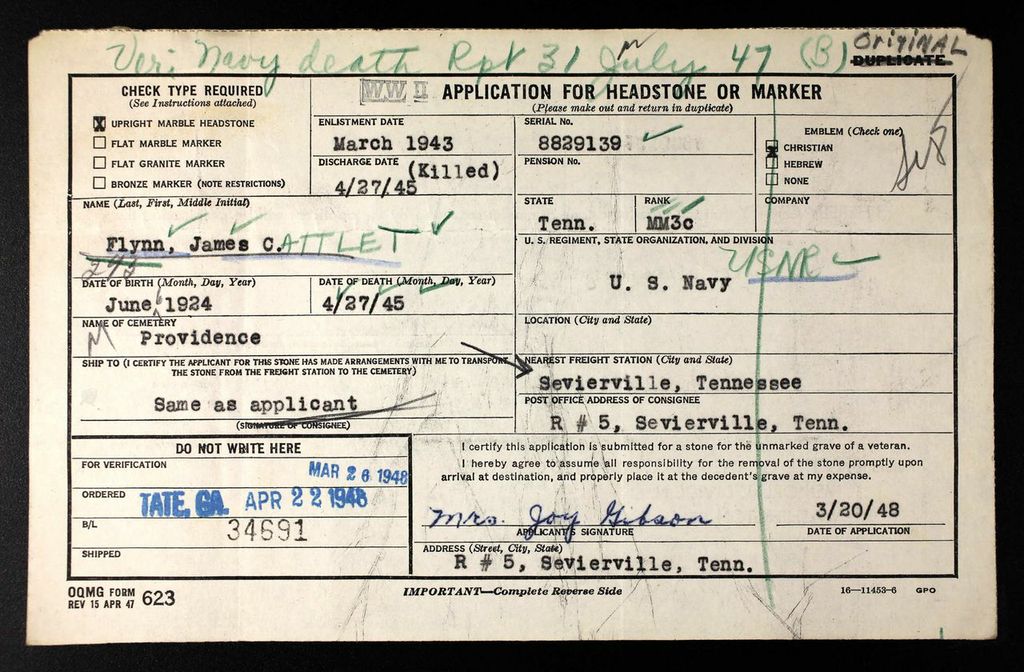 Veri Navy death Rpt 31 July 47 (B)
ORIGINAL
DUPLICATE
CHECK TYPE REQUIRED
(See Instructions attached)
X UPRIGHT MARBLE HEADSTONE
FLAT MARBLE MARKER
FLAT GRANITE MARKER
BRONZE MARKER (NOTE RESTRICTIONS)
WW II APPLICATION FOR HEADSTONE OR MARKER
(Please make out and return in duplicate)
ENLISTMENT DATE
March 1943
DISCHARGE DATE (Killed)
4/27/45
SERIAL No.
8829139 ✓
PENSION No.
EMBLEM (Check one)
X CHRISTIAN
HEBREW
NONE
STATE
Tenn.
RANK
MM3c
COMPANY
NAME (Last, First, Middle Initial)
Flynn, James C. ATTLET ✓
U. S. REGIMENT, STATE ORGANIZATION, AND DIVISION
U. S. Navy USNR ✓
DATE OF BIRTH (Month, Day, Year)
June 1924
DATE OF DEATH (Month, Day, Year)
4/27/45
NAME OF CEMETERY
Providence
LOCATION (City and State)
SHIP TO (I CERTIFY THE APPLICANT FOR THIS STONE HAS MADE ARRANGEMENTS WITH ME TO TRANSPORT
THE STONE FROM THE FREIGHT STATION TO THE CEMETERY.)
Same as applicant
(SIGNATURE OF CONSIGNEE)
NEAREST FREIGHT STATION (City and State)
Sevierville, Tennessee
POST OFFICE ADDRESS OF CONSIGNEE
R # 5, Sevierville, Tenn.
DO NOT WRITE HERE
FOR VERIFICATION
MAR 26 1948
ORDERED
TATE, GA. APR 22 1948
B/L
34691
SHIPPED
I certify this application is submitted for a stone for the unmarked grave of a veteran.
I hereby agree to assume all responsibility for the removal of the stone promptly upon
arrival at destination, and properly place it at the decedent's grave at my expense.
Mrs. Joy Gibson
APPLICANT'S SIGNATURE
3/20/48
DATE OF APPLICATION
ADDRESS (Street, City, State)
R # 5, Sevierville, Tenn.
OQMG FORM
REV 15 APR 47 623
IMPORTANT—Complete Reverse Side
16—11453-6 GPO